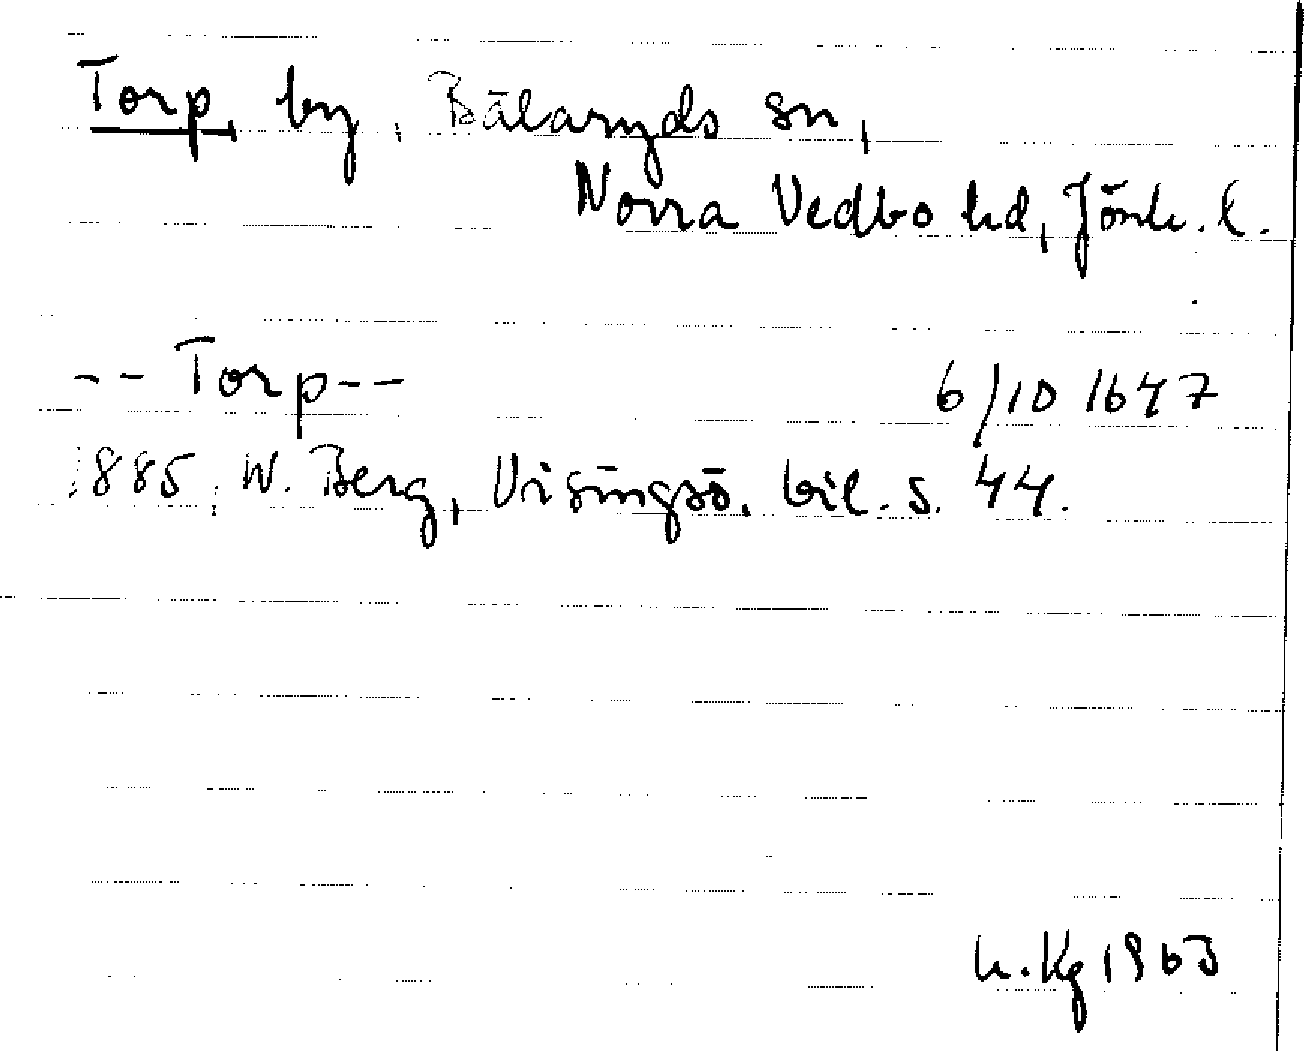 Torp, by, Bälaryds sn,
Norra Vedbo hd, Jönk. l.
-- Torp -- 6/10 1647
1885, W. Berg, Visingsö. bil. s. 44.
h. Kg 1963